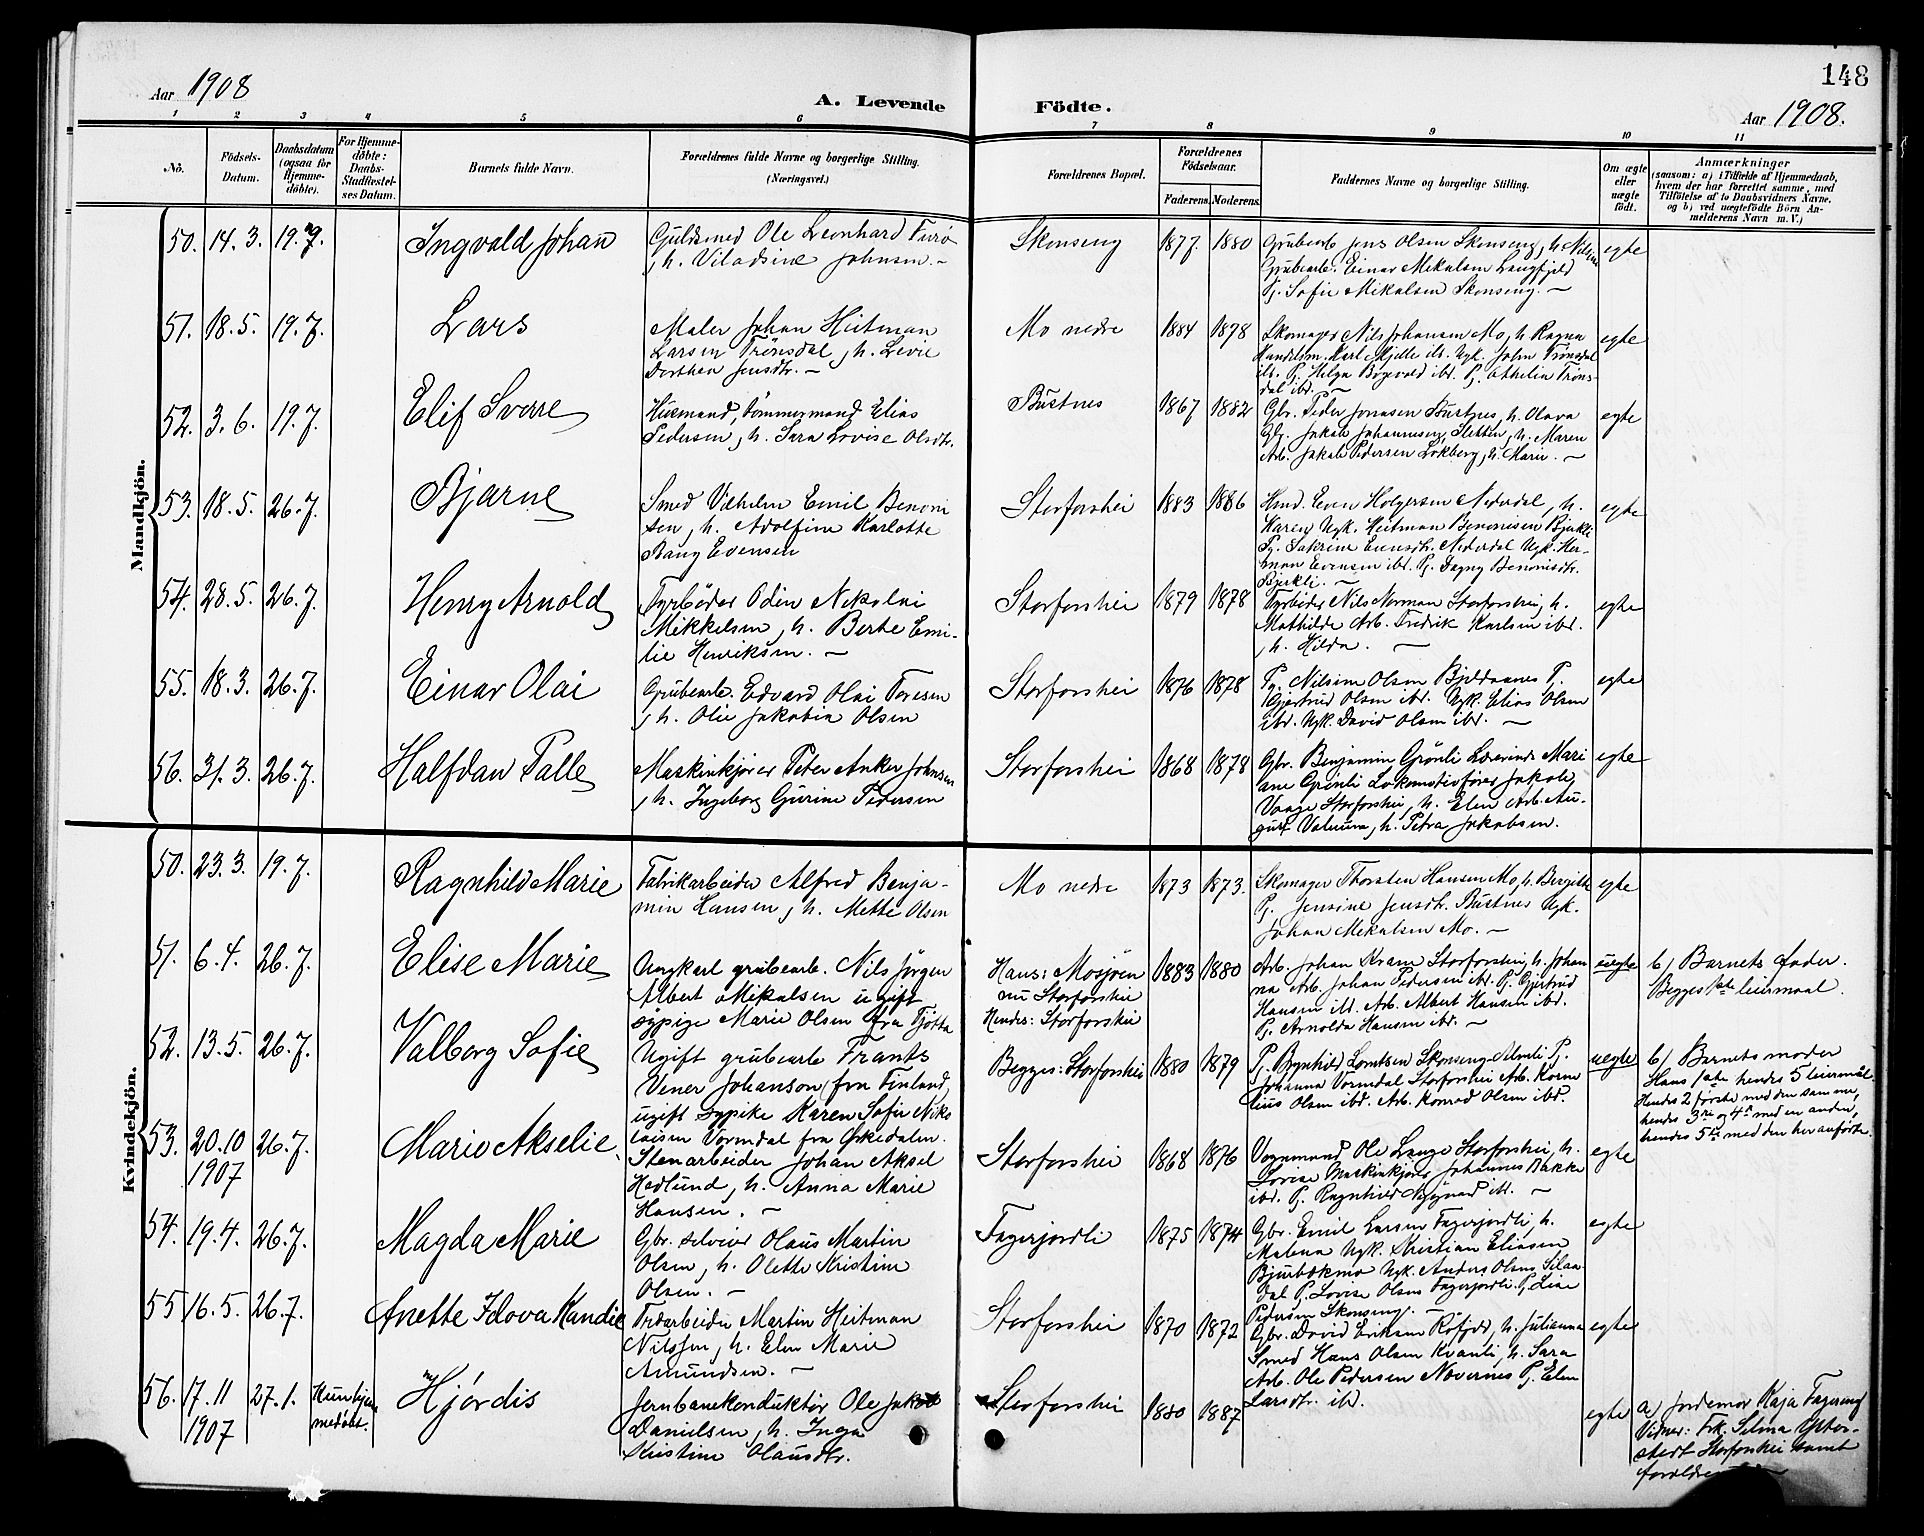 148
Aar 1908
A. Levende
Födte.
Aar 1908.
1 2 3 4 5 6 7 8 9 10 11
No.
Födsels-
Datum.
Daabsdatum
(ogsaa for
Hjemme-
döbte).
For Hjemme-
döbte:
Daabs-
Stadfæstel-
ses Datum.
Barnets fulde Navn.
Forældrenes fulde Navne og borgerlige Stilling.
(Næringsvei.)
Forældrenes Bopæl.
Forældrenes
Födselsaar.
Faderens. Moderens.
Faddernes Navne og borgerlige Stilling.
Om ægte
eller
uægte
født.
Anmærkninger
(saasom: a) i Tilfælde af Hjemmedaab,
hvem der har forrettet samme, med
Tilföielse af to Daabsvidners Navne,
og b) ved uægtefödte Börn An-
melderens Navn m. V.)
Mandkjön.
50. 14. 3. 19. 7. Ingvald Johan
Guldsmed Ole Leonhard Furö
, h. Viladsine Johnsen. –
Skonseng 1877. 1880
Grubearb. Jens Olsen Skonseng, h. Nilsine
Grubearb. Einar Mikalsen Langfjeld
Pj. Sofie Mikalsen Skonseng. –
egte
51. 18. 5. 19. 7. Lars
Maler Johan Heitman
Larsen Trönsdal, h. Levie
Dorthea Jensdtr. –
Mo nedre 1884 1878
Skomager Nils Johansen Mo, h. Ragna
Handelsm. Karl Mjelle ib. Ugk. John Trönsdal
ib. Pj. Helga Bogevold ibd. Pj. Othelia Tröns-
dal ibd. –
egte
52. 3. 6. 19. 7. Elif Sverre
Husmand, Tömmermand Elias
Pedersen, h. Sara Lovise Olsdtr.
Bustnes 1867 1882
Gbr. Peder Jonasen Bustnes, h. Olava
Gbr. Jakob Johannesen Sletten, h. Maren
Arb. Jakob Pedersen Lökberg, h. Marie. –
egte
53. 18. 5. 26. 7. Bjarne
Smed Vilhelm Emil Benoni
sen, h. Adolfine Karlotte
Bang Evensen
Storforshei 1883 1886
Hmd. Even Holgersen Nederdal, h.
Karen Ugk. Heitman Benonisen Bjerkli
Pj. Sakrine Evensdtr. Nederdal Ugk. Her-
man Evensen ibd. Pj. Dagny Benonisdtr.
Bjerkli. –
egte
54. 28. 5. 26. 7. Henry Arnold
Fyrböder Odin Nikolai
Mikkelsen, h. Berte Emi-
lie Henriksen. –
Storforshei 1879 1878
Fyrböder Nils Norman Storforshei, h.
Mathilde Arb. Fredrik Karlsen ibd.
, h. Hilda. –
egte
55. 18. 3. 26. 7. Einar Olai
Grubearb. Edvard Olai Toresen
, h. Olie Jakobia Olsen
Storforshei 1876 1878
Pj. Nilsine Olsen Bjeldaanes Pj.
Gjertrud Olsen ibd. Ugk. Elias Olsen
ibd. Ugk. David Olsen ibd. –
egte
56. 31. 3. 26. 7. Halfdan Palle
Maskinkjörer Peter Anker Johnsen
, h. Ingeborg Gurine Pedersen
Storforshei 1868 1878
Gbr. Benjamin Grönli Lærerinde Mari
ane Grönli Lokomotivförer Jakob
Vaage Storforshei, h. Elen Arb. Au-
gust h. Petra Jakobsen.
egte
Kvindekjön.
50. 23. 3. 19. 7. Ragnhild Marie
Fabrikarbeider Alfred Benja-
min Hansen, h. Mette Olsen
Mo nedre 1873 1873.
Skomager Thorsten Hansen Mo, h. Bergitte
Pj. Jensine Jensdtr. Bustnes Ugk.
Johan Mikalsen Mo. –
egte
51. 6. 4. 26. 7. Elise Marie
Ungkarl grubearb. Nils Jörgen
Albert Mikalsen ugift
sypige Marie Olsen fra Tjötta
Hans: Mosjöen
nu Storforshei
Hendes: Storforshei
1883 1880
Arb. Johan Kram Storforshei, h. Johan
na Arb. Johan Pedersen ibd. Pj. Gjertrud
Hansen ibd. Arb. Albert Hansen ibd.
Pj. Arnolda Hansen ibd. –
uegte
b) Barnets fader.
Begges 1ste leiermaal.
52. 13. 5. 26. 7. Valborg Sofie
Ugift grubearb. Frants
Vener Johanson (fra Finland,
ugift sypike Karen Sofie Niko
laisen Vormdal fra Orkedalen.
Begges: Storforshei 1880 1879
Pj. Borghild Lomtsen Skonseng Pj.
Johanna Vormdal Storforshei Arb. Korne
lius Olsen ibd. Arb. Konrad Olsen ibd.
uegte
b) Barnets moder
Hans 1ste hendes 5 leiermaal.
Hendes 2 første med den samme,
hendes 3die og 4de med en anden,
hendes 5te med den her anförte.
53. 20. 10 26. 7. Marie Akselie
1907
Stenarbeider Johan Aksel
Hedlund, h. Anna Marie
Hansen. –
Storforshei 1868 1876
Vognmand Ole Lange Storforshei, h.
Lovise Maskinkjörer Johannes Bakke
ibd. Pj. Ragnhild Nygaard ibd. –
egte
54. 19. 4. 26. 7. Magda Marie
Gbr. selveier Olaus Martin
Olsen, h. Olette Kristine
Olsen. –
Fagerjordli 1875 1874
Gbr. Emil Larsen Fagerjordli, h.
Malena Ugk. Kristian Eliasen
Bjurbækmo Ugk. Anders Olsen Silaa
dal Pj. Lovise Olsen Fagerjordli Pj. Lina
Pedersen Skonseng. –
egte
55 16. 5. 26. 7. Anette Idova Kandie
Træarbeider Martin Heitman
Nilssen, h. Elen Marie
Amundsen. –
Storforshei 1870 1872
Gbr. David Eriksen Röfjeld, h. Julianna
Smed Hans Olsen Kvanli, h. Sara
Arb. Ole Pedersen Nævernes Pj. Elen
Larsdtr. ibd.
egte
56. 17. 11 27. 1. Kun hjem
1907 medöbt.
Hjördis
Jernbanekonduktör Ole Jakob
Danielsen, h. Inga
Kristine Olausdtr.
Storforshei 1880 1887
egte
a) Jordemor Kaja Fagereng
Vidner: Frk. Selma Ytter-
stedt Storforshei samt
forældrene